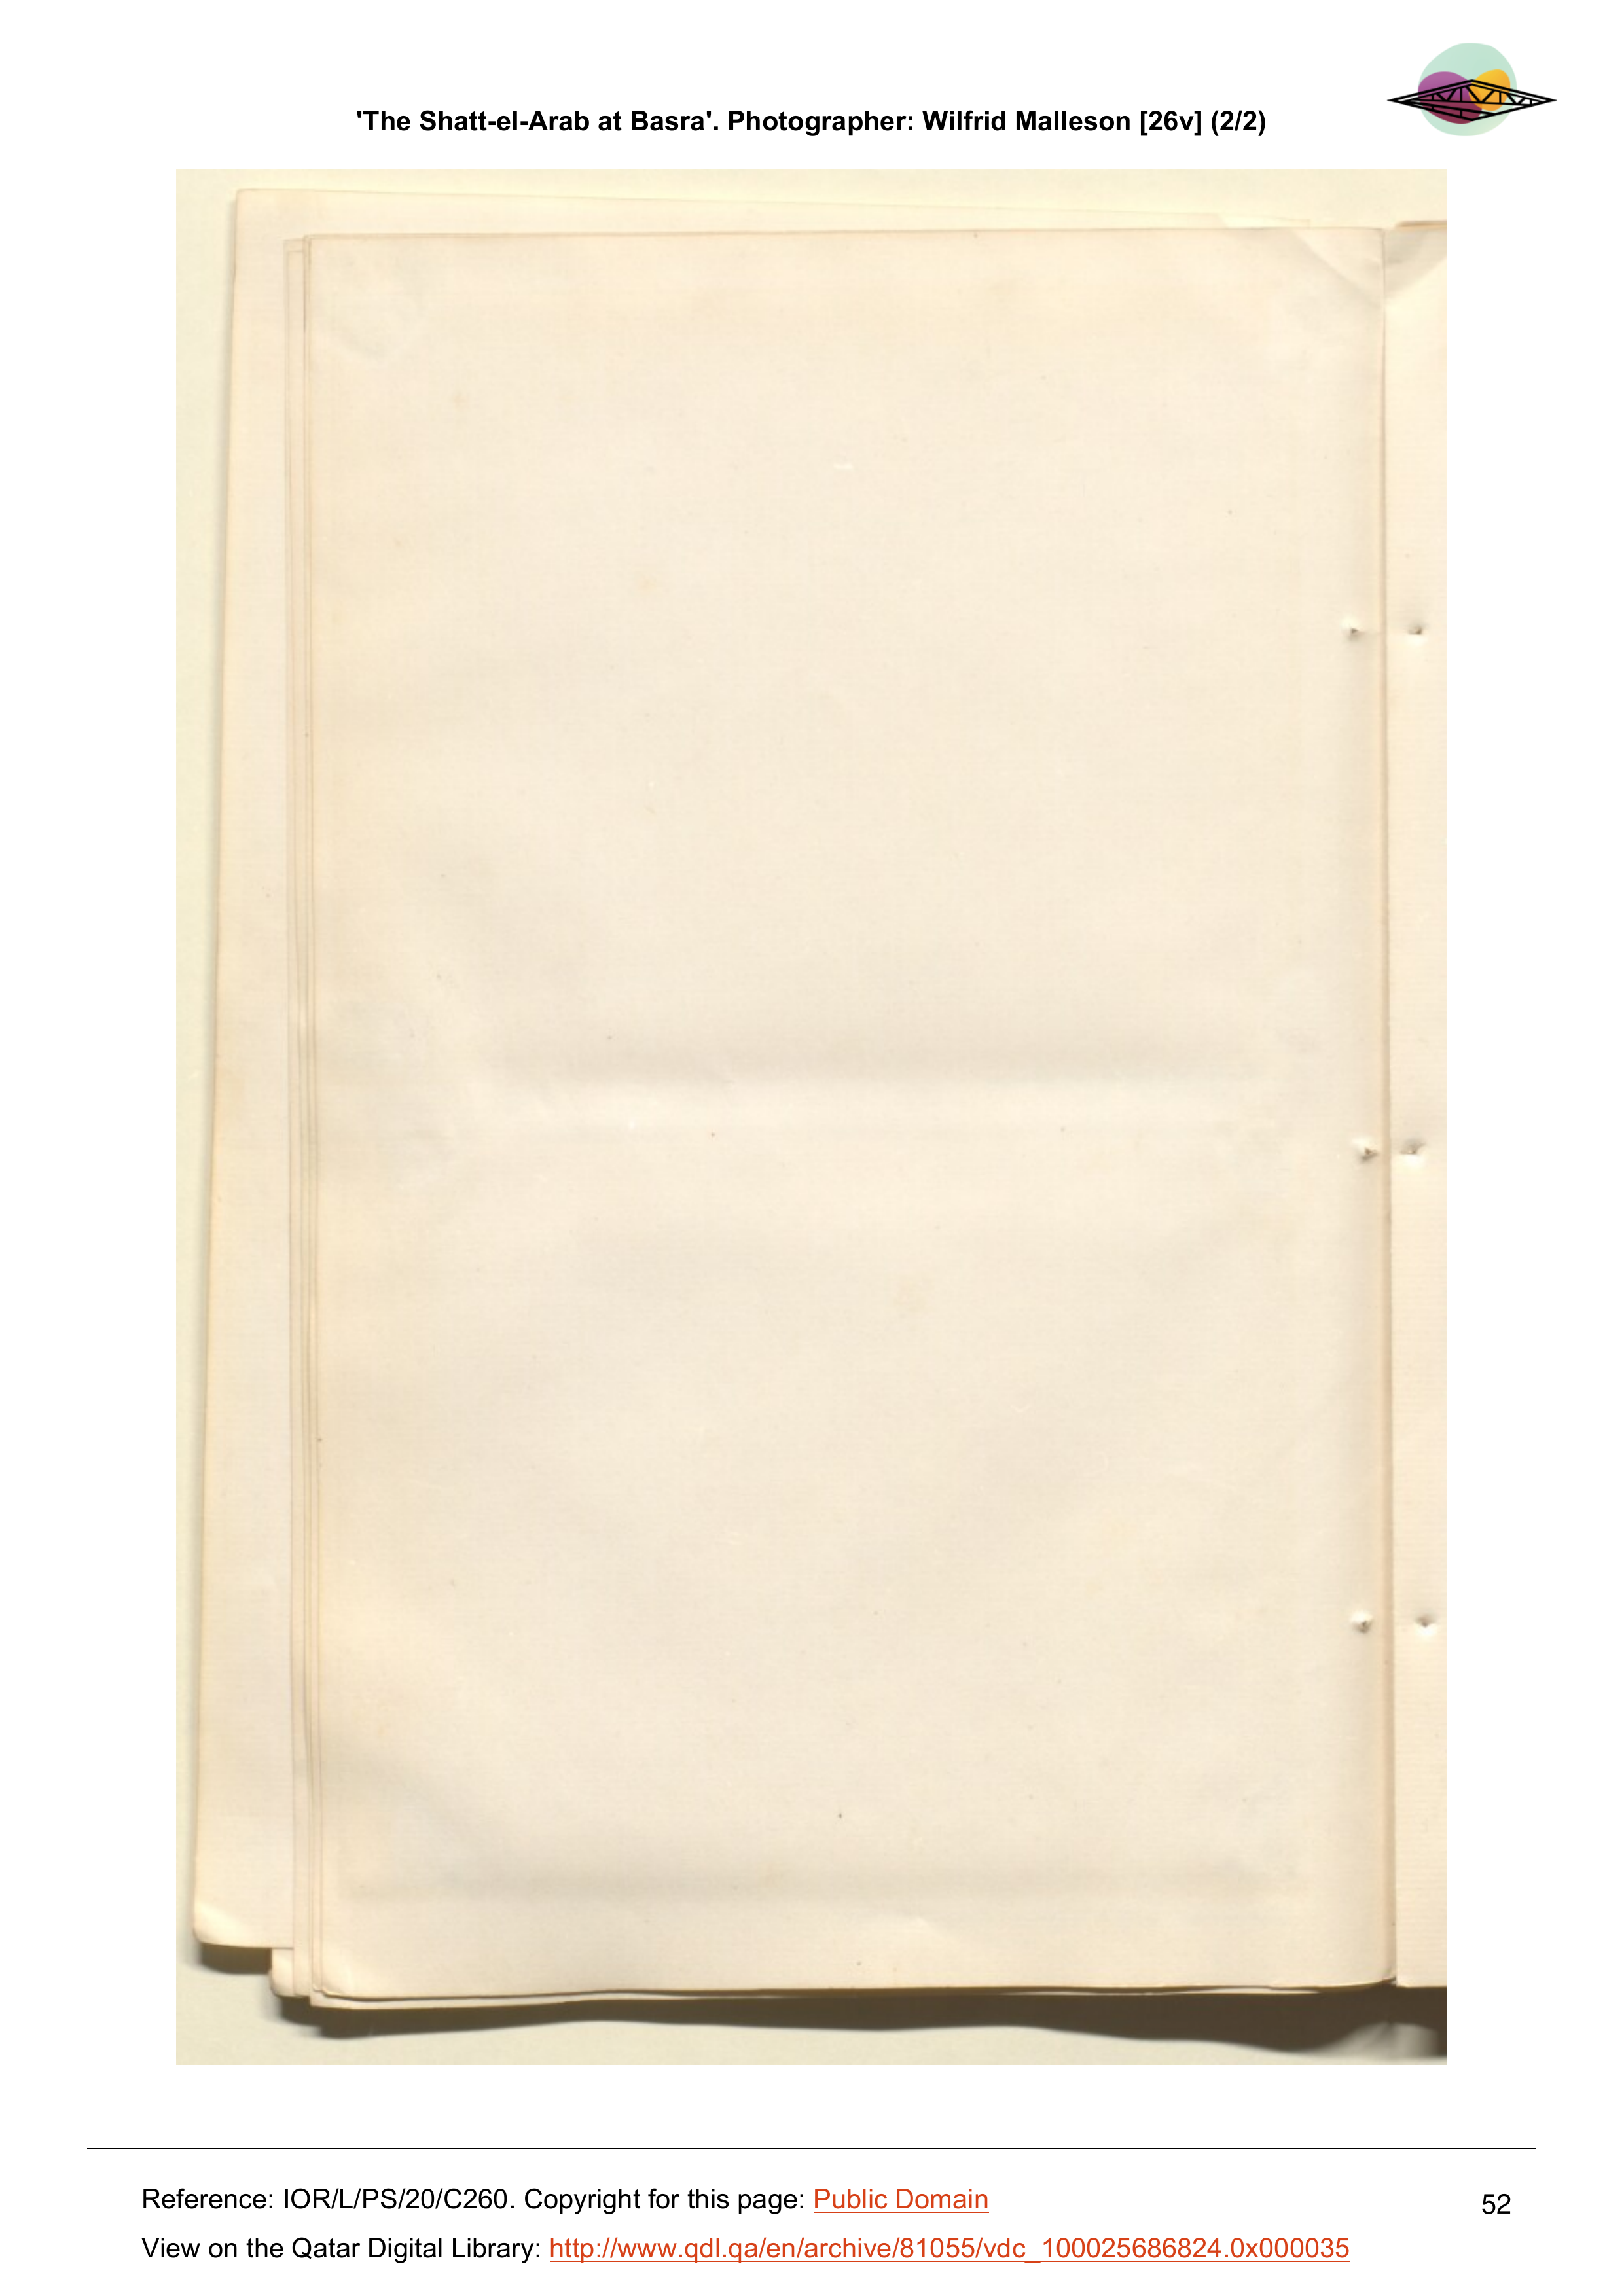 'The Shatt-el-Arab at Basra'. Photographer: Wilfrid Malleson [26v] (2/2)
Reference: IOR/L/PS/20/C260. Copyright for this page: Public Domain
52
View on the Qatar Digital Library: http://www.qdl.qa/en/archive/81055/vdc_100025686824.0x000035